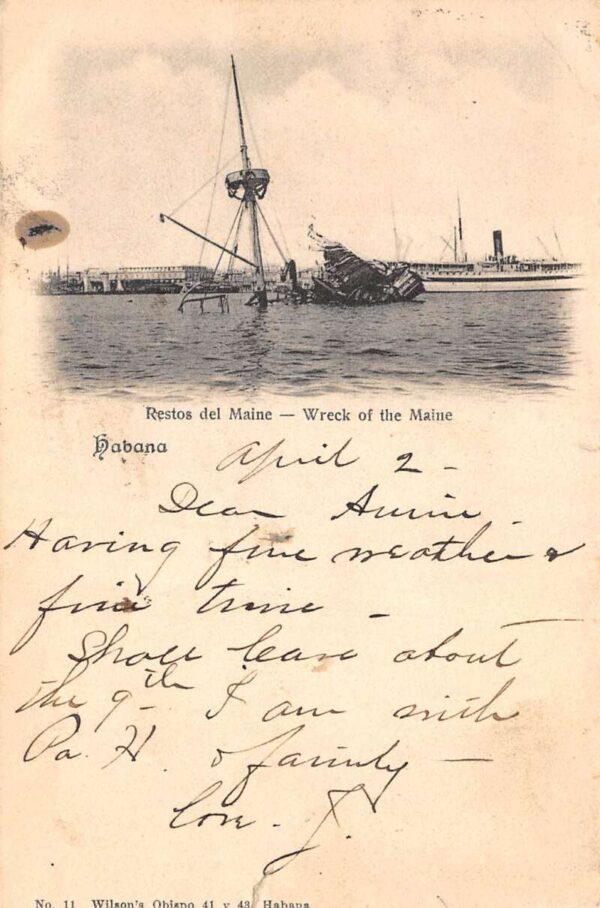 Restos del Maine — Wreck of the Maine
Habana
April 2 -
Dear Annie
Having fine weather &
fine time -
Shall leave about
the 9th I am with
Pa. H. & family —
love. J.
No. 11 Wilson's Obispo 41 y 43, Habana